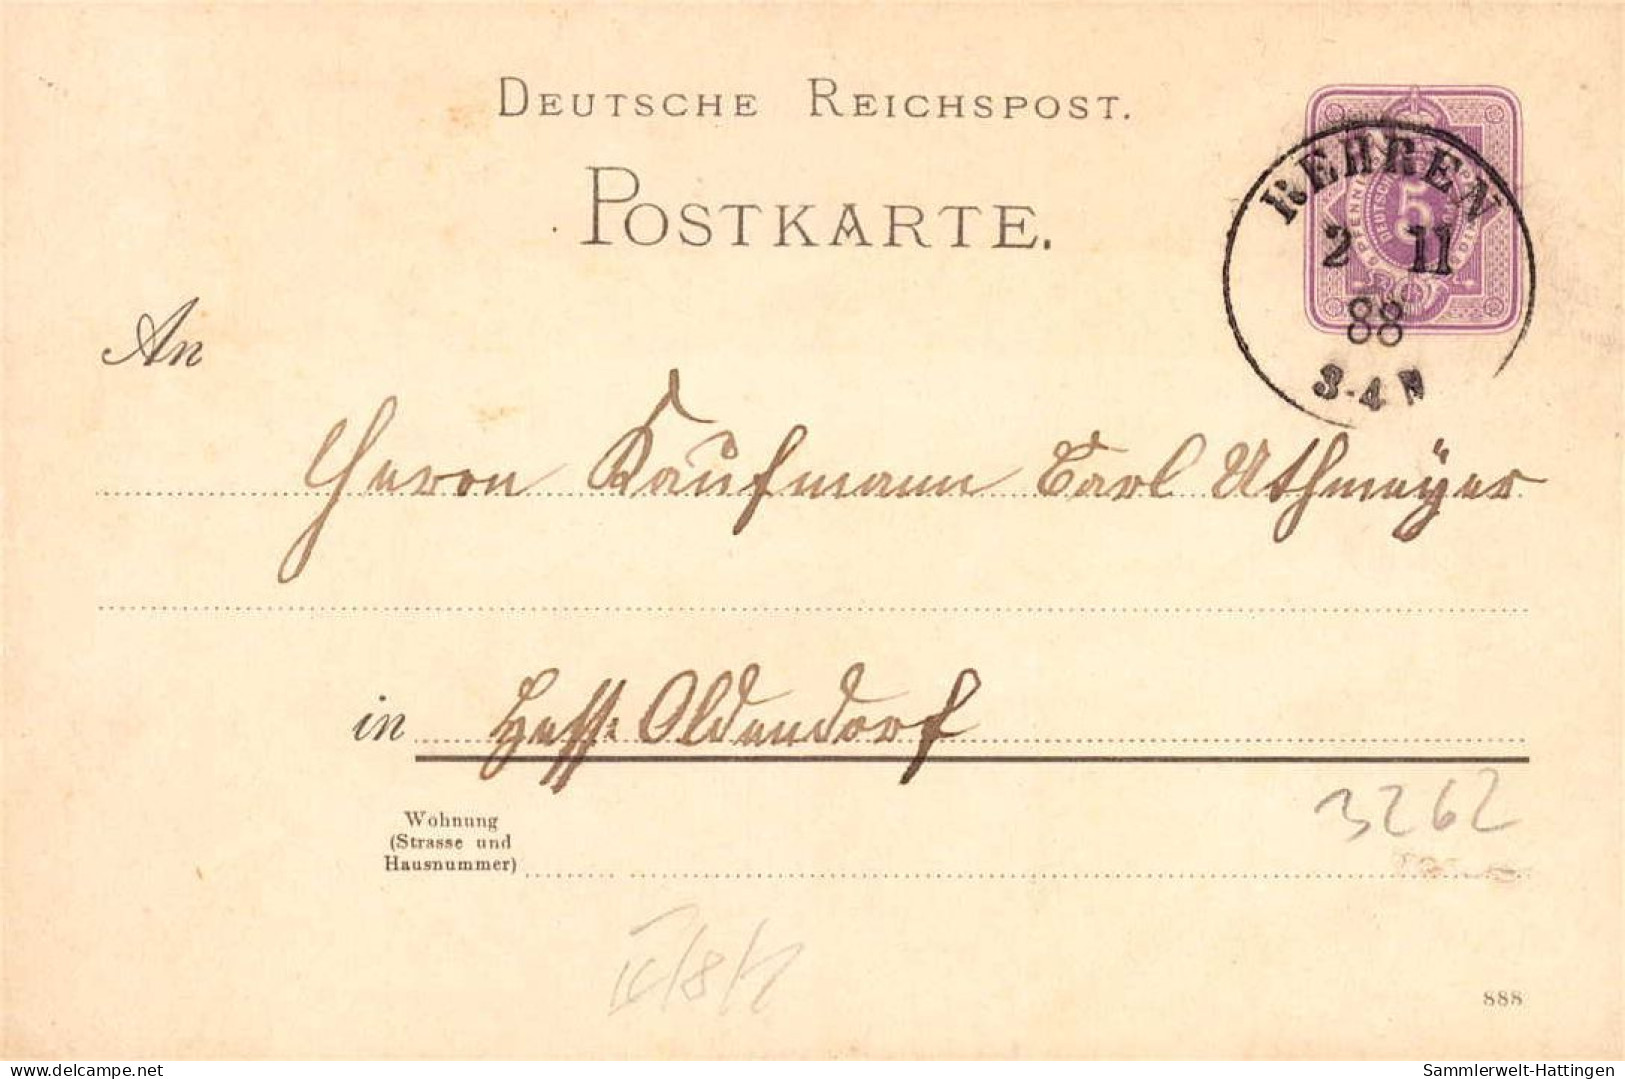 DEUTSCHE REICHSPOST.
POSTKARTE.
REHREN
2 11
88
3-4 N
5
An
Herrn Kaufmann Carl Uthmeÿer
in Hess: Oldendorf
3262
Wohnung
(Strasse und
Hausnummer)
888
delcampe.net
Sammlerwelt-Hattingen